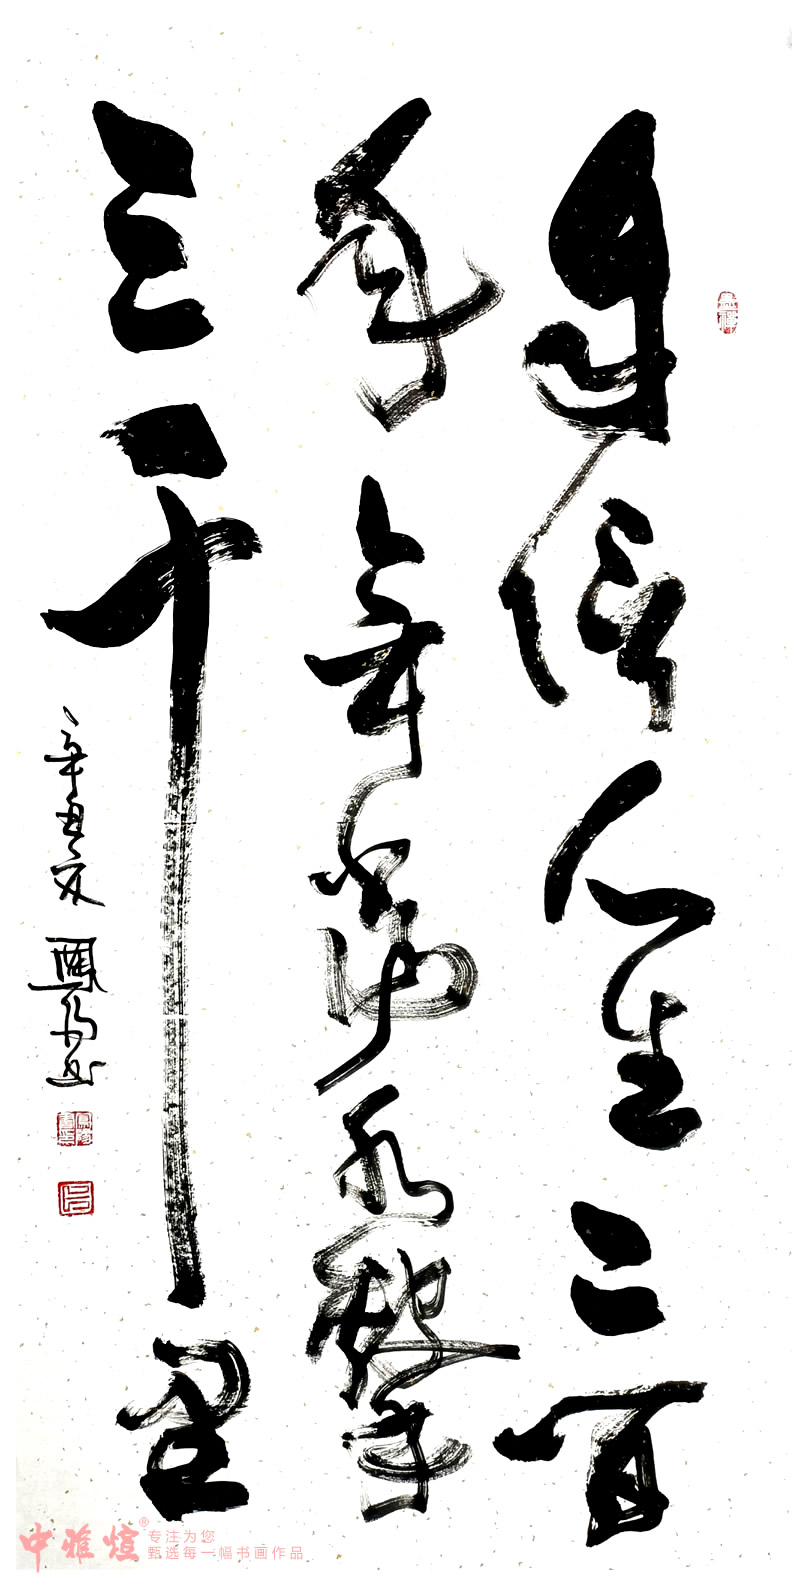 自信人生二百
年會當水擊
三千里
辛丑夏
中雅煊®
专注为您
甄选每一幅书画作品